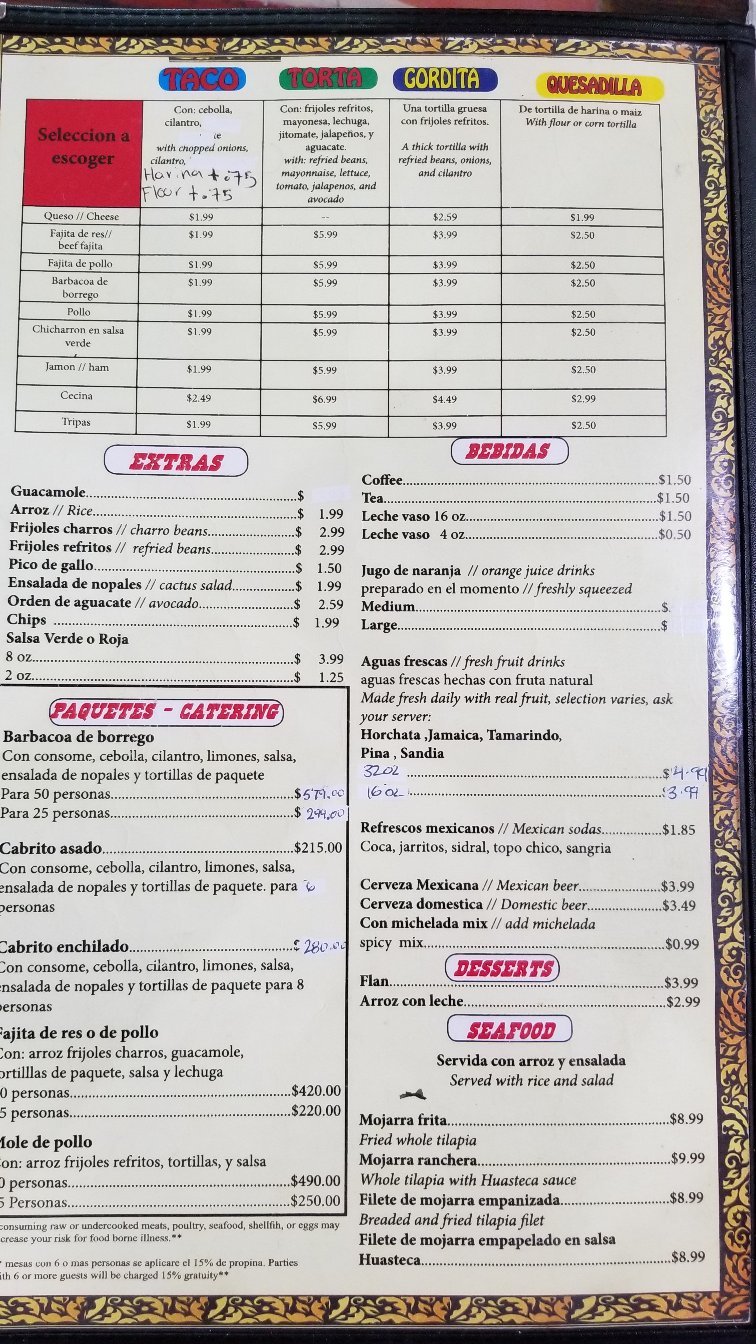 TACO TORTA GORDITA QUESADILLA
Seleccion a
escoger
Con: cebolla,
cilantro,
with chopped onions,
cilantro,
Harina +.75
Flour +.75
Con: frijoles refritos,
mayonesa, lechuga,
jitomate, jalapeños, y
aguacate.
with: refried beans,
mayonnaise, lettuce,
tomato, jalapenos, and
avocado
Una tortilla gruesa
con frijoles refritos.
A thick tortilla with
refried beans, onions,
and cilantro
De tortilla de harina o maiz
With flour or corn tortilla
Queso // Cheese $1.99 -- $2.59 $1.99
Fajita de res//
beef fajita $1.99 $5.99 $3.99 $2.50
Fajita de pollo $1.99 $5.99 $3.99 $2.50
Barbacoa de
borrego $1.99 $5.99 $3.99 $2.50
Pollo $1.99 $5.99 $3.99 $2.50
Chicharron en salsa
verde $1.99 $5.99 $3.99 $2.50
Jamon // ham $1.99 $5.99 $3.99 $2.50
Cecina $2.49 $6.99 $4.49 $2.99
Tripas $1.99 $5.99 $3.99 $2.50
EXTRAS
Guacamole $
Arroz // Rice $ 1.99
Frijoles charros // charro beans $ 2.99
Frijoles refritos // refried beans $ 2.99
Pico de gallo $ 1.50
Ensalada de nopales // cactus salad $ 1.99
Orden de aguacate // avocado $ 2.59
Chips $ 1.99
Salsa Verde o Roja
8 oz $ 3.99
2 oz $ 1.25
PAQUETES - CATERING
Barbacoa de borrego
Con consome, cebolla, cilantro, limones, salsa,
ensalada de nopales y tortillas de paquete
Para 50 personas $579.00
Para 25 personas $ 299.00
Cabrito asado $215.00
Con consome, cebolla, cilantro, limones, salsa,
ensalada de nopales y tortillas de paquete. para 6
personas
Cabrito enchilado $ 280.00
Con consome, cebolla, cilantro, limones, salsa,
ensalada de nopales y tortillas de paquete para 8
personas
Fajita de res o de pollo
Con: arroz frijoles charros, guacamole,
tortilllas de paquete, salsa y lechuga
0 personas $420.00
5 personas $220.00
Mole de pollo
Con: arroz frijoles refritos, tortillas, y salsa
0 personas $490.00
5 Personas $250.00
consuming raw or undercooked meats, poultry, seafood, shellfih, or eggs may
crease your risk for food borne illness.**
* mesas con 6 o mas personas se aplicare el 15% de propina. Parties
ith 6 or more guests will be charged 15% gratuity**
BEBIDAS
Coffee $1.50
Tea $1.50
Leche vaso 16 oz $1.50
Leche vaso 4 oz $0.50
Jugo de naranja // orange juice drinks
preparado en el momento // freshly squeezed
Medium $
Large $
Aguas frescas // fresh fruit drinks
aguas frescas hechas con fruta natural
Made fresh daily with real fruit, selection varies, ask
your server:
Horchata ,Jamaica, Tamarindo,
Pina , Sandia
32oz $4.99
16oz 3.99
Refrescos mexicanos // Mexican sodas $1.85
Coca, jarritos, sidral, topo chico, sangria
Cerveza Mexicana // Mexican beer $3.99
Cerveza domestica // Domestic beer $3.49
Con michelada mix // add michelada
spicy mix $0.99
DESSERTS
Flan $3.99
Arroz con leche $2.99
SEAFOOD
Servida con arroz y ensalada
Served with rice and salad
Mojarra frita $8.99
Fried whole tilapia
Mojarra ranchera $9.99
Whole tilapia with Huasteca sauce
Filete de mojarra empanizada $8.99
Breaded and fried tilapia filet
Filete de mojarra empapelado en salsa
Huasteca $8.99